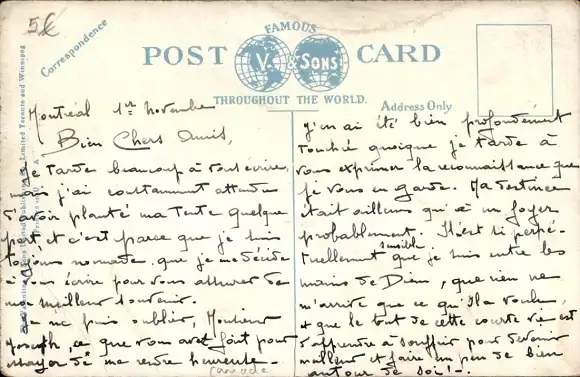 5€
Correspondence
FAMOUS
POST CARD
V. & SONS
THROUGHOUT THE WORLD.
Address Only
Limited Toronto and Winnipeg
Montréal 1er Novembre
Bien Chers Amis,
Je tarde beaucoup à vous écrire,
mais j'ai constamment attendu
d'avoir planté ma tente quelque
part et c'est parce que je suis
toujours nomade que je me décide
à vous écrire pour vous assurer de
mon meilleur souvenir.
Je ne puis oublier, Monsieur
Joseph, ce que vous avez fait pour
essayer de me rendre heureuse.
canada
J'en ai été bien profondément
touché quoique je tarde à
vous exprimer la reconnaissance que
je vous en garde. Ma destinée
était ailleurs qu'à un foyer
probablement. Il est si perpé-
sensible
tuellement que je suis entre les
mains de Dieu, que rien ne
m'arrive que ce qu'Il a voulu,
& que le but de cette courte vie est
d'apprendre à souffrir pour devenir
meilleur et faire un peu de bien
autour de soi!-